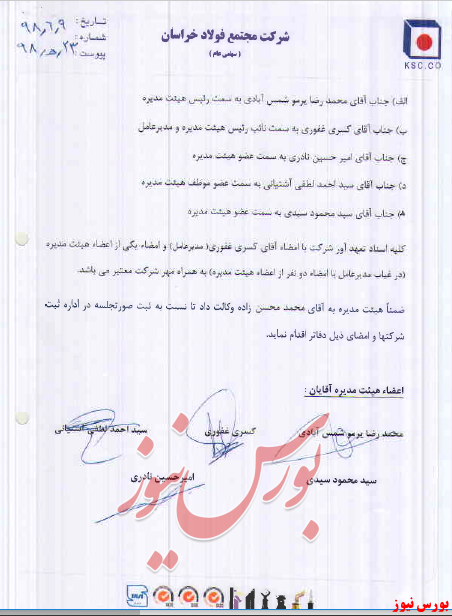 شرکت مجتمع فولاد خراسان
(سهامی عام)
KSC.CO
تاریخ: ۹۸,۶,۹
شماره:
پیوست:
الف) جناب آقای محمد رضا یرمو شمس آبادی به سمت رئیس هیئت مدیره
ب) جناب آقای کسری غفوری به سمت نائب رئیس هیئت مدیره و مدیرعامل
ج) جناب آقای امیر حسین نادری به سمت عضو هیئت مدیره
د) جناب آقای سید احمد لطفی آشتیانی به سمت عضو موظف هیئت مدیره
ه) جناب آقای سید محمود سیدی به سمت عضو هیئت مدیره
کلیه اسناد تعهد آور شرکت با امضاء آقای کسری غفوری( مدیرعامل) و امضاء یکی از اعضاء هیئت مدیره
(در غیاب مدیرعامل با امضاء دو نفر از اعضاء هیئت مدیره) به همراه مهر شرکت معتبر می باشد.
ضمناً هیئت مدیره به آقای محمد محسن زاده وکالت داد تا نسبت به ثبت صورتجلسه در اداره ثبت
شرکتها و امضای ذیل دفاتر اقدام نماید.
اعضاء هیئت مدیره آقایان :
محمد رضا یرمو شمس آبادی کسری غفوری سید احمد لطفی آشتیانی
سید محمود سیدی امیرحسین نادری
بورس نیوز
بورس نیوز